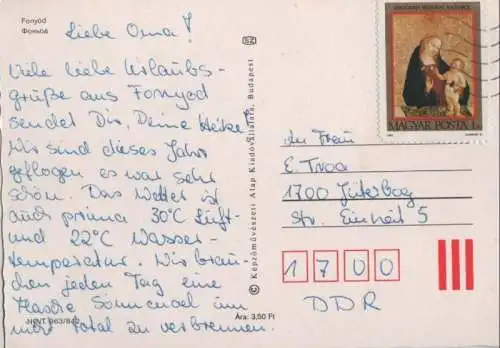 Fonyód
Фоньод
Liebe Oma!
Viele liebe Urlaubs-
grüße aus Fonyod
sendet Dir, Deine Heike!
Wir sind dieses Jahr
geflogen es war sehr
schön. Das Wetter ist
auch prima 30°C Luft-
und 22°C Wasser-
temperatur. Wir brau-
chen jeden Tag eine
Flasche Sonnenoel um
nicht total zu verbrennen.
SZ
© Képzőművészeti Alap Kiadóvállalata, Budapest
Ára: 3,50 Ft
MAGYAR POSTA 1
An Frau
E.
1700 Jüterbog
Str. Einheit 5
1 7 0 0
DDR